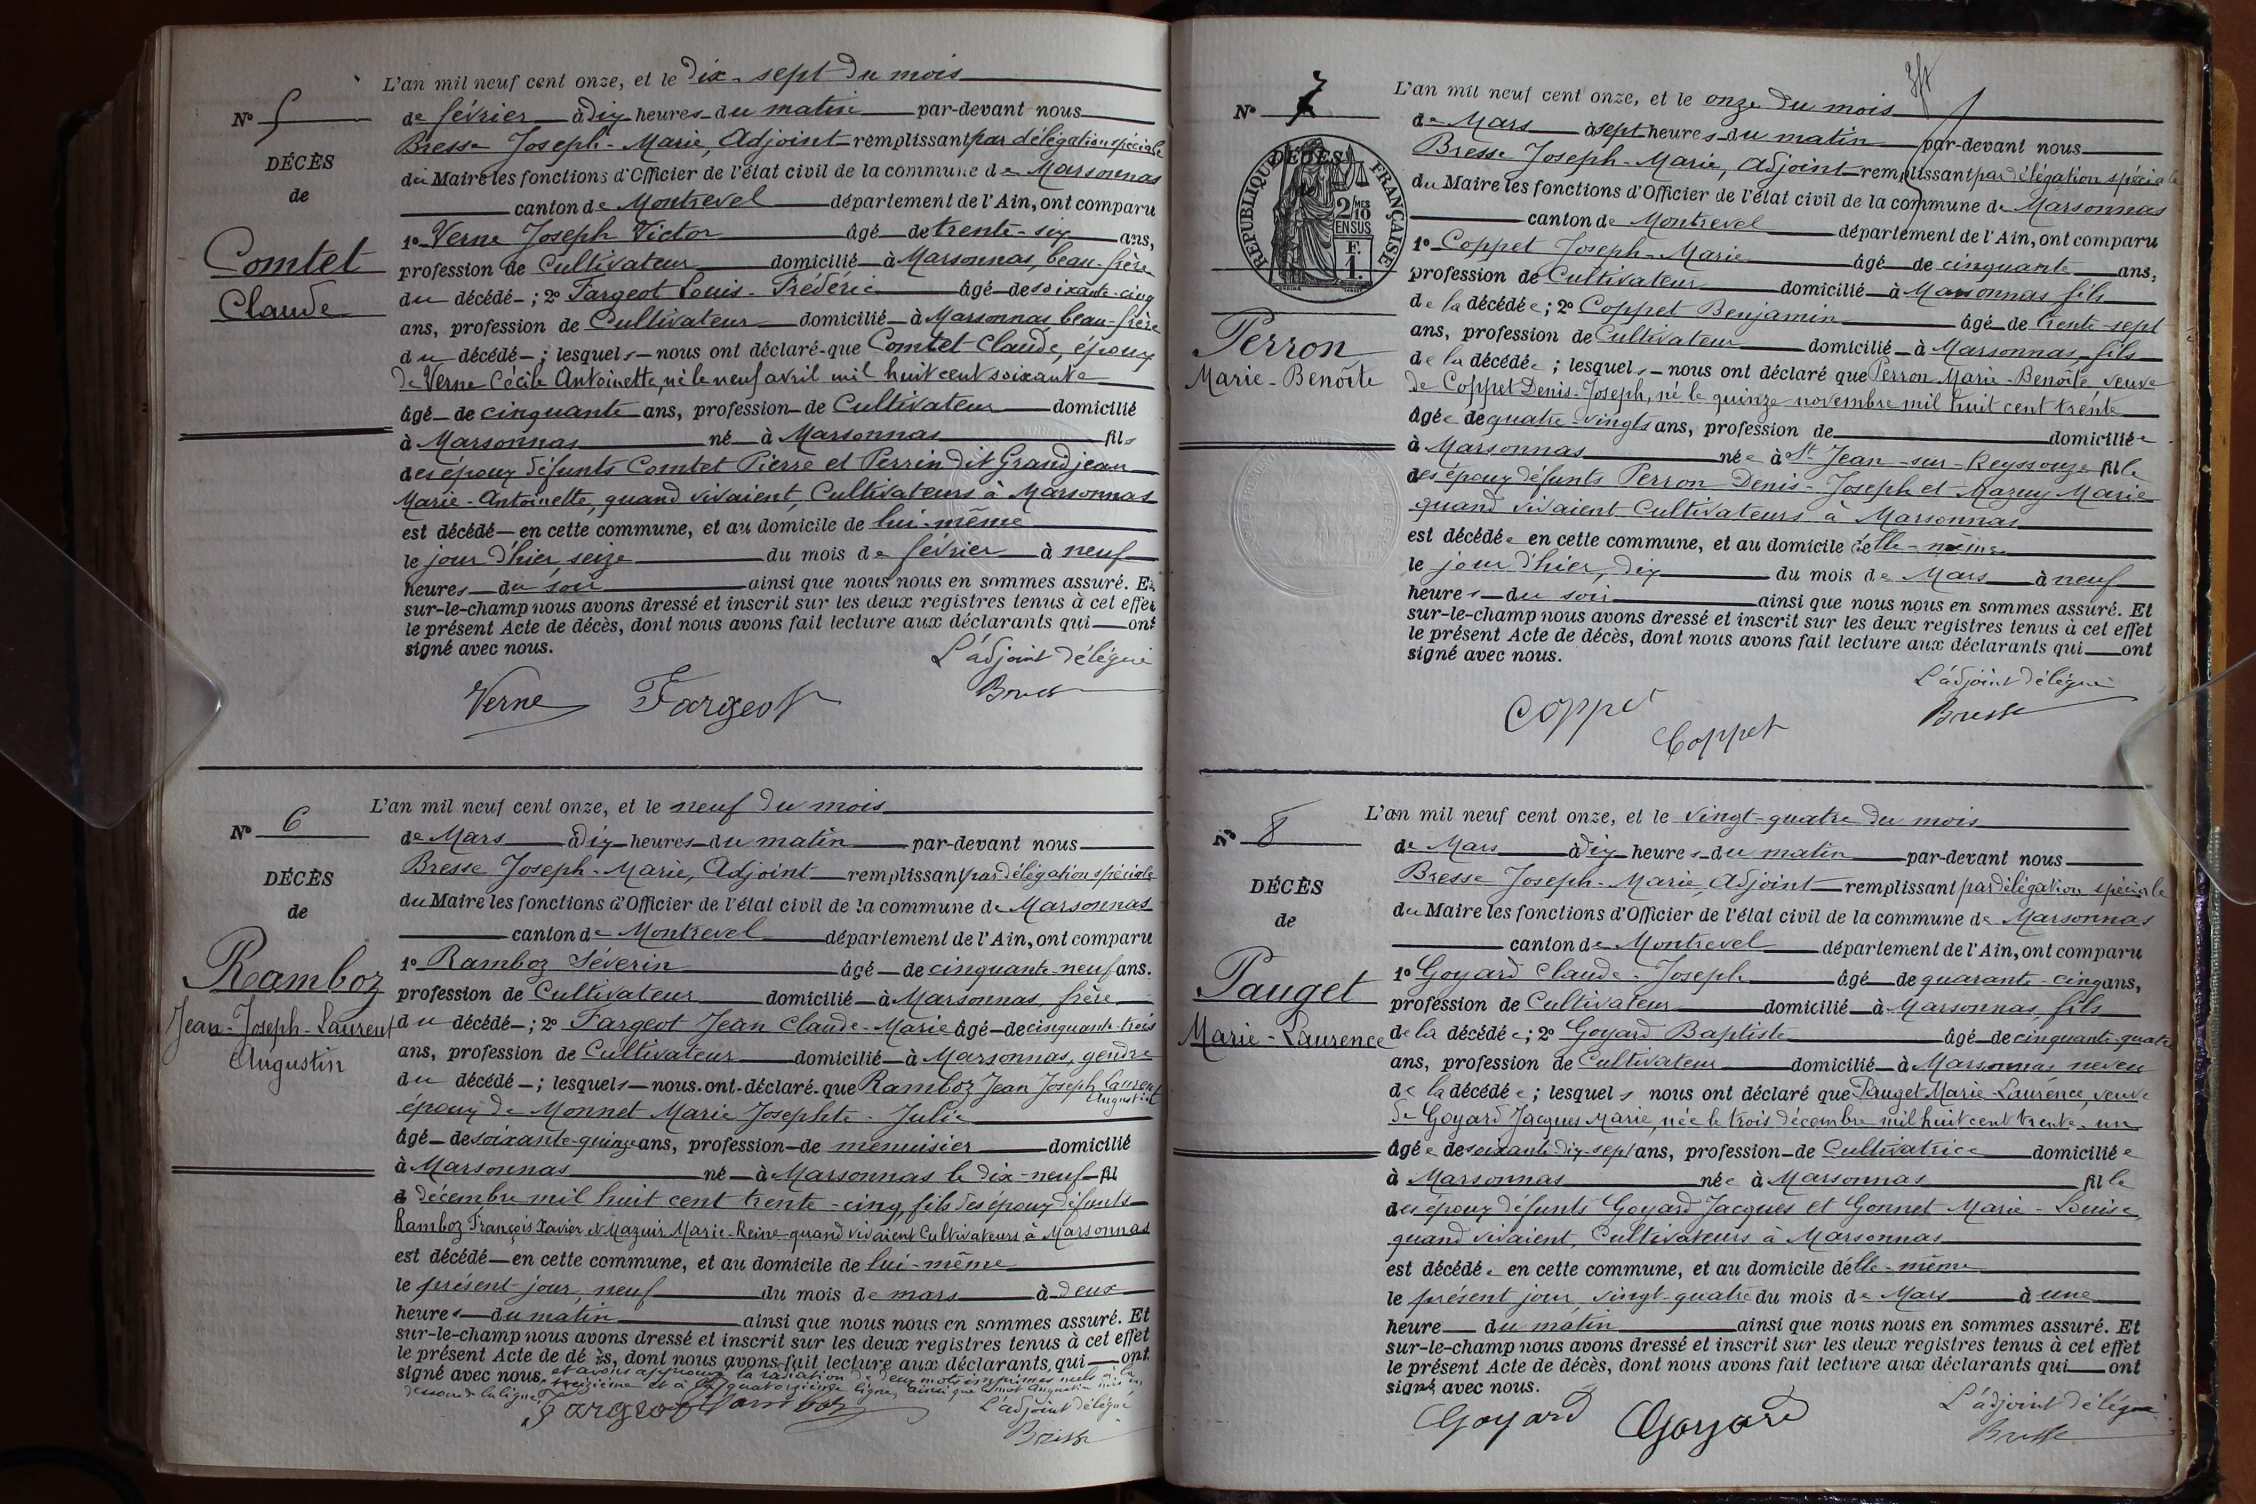 L'an mil neuf cent onze, et le dix-sept du mois
N° 5
de février à dix heures du matin par-devant nous
Bresse Joseph-Marie, Adjoint remplissant par délégation spéciale
DÉCÈS
du Maire les fonctions d'Officier de l'état civil de la commune de Marsonnas
de
canton de Montrevel département de l'Ain, ont comparu
1° Verne Joseph Victor âgé de trente-six ans,
Comtet
profession de Cultivateur domicilié à Marsonnas, beau-frère
Claude
du décédé; 2° Fargeot Louis-Frédéric âgé de soixante-cinq
ans, profession de Cultivateur domicilié à Marsonnas beau-frère
du décédé; lesquels nous ont déclaré que Comtet Claude, époux
de Verne Cécile Antoinette, né le neuf avril mil huit cent soixante
âgé de cinquante ans, profession de Cultivateur domicilié
à Marsonnas né à Marsonnas fils
des époux défunts Comtet Pierre et Perrin dit Grandjean
Marie-Antoinette, quand vivaient, Cultivateurs à Marsonnas
est décédé en cette commune, et au domicile de lui-même
le jour d'hier seize du mois de février à neuf
heures du soir ainsi que nous nous en sommes assuré. Et
sur-le-champ nous avons dressé et inscrit sur les deux registres tenus à cet effet
le présent Acte de décès, dont nous avons fait lecture aux déclarants qui ont
signé avec nous.
L'adjoint délégué
Verne Fargeot Bresse
L'an mil neuf cent onze, et le neuf du mois
N° 6
de Mars à dix heures du matin par-devant nous
Bresse Joseph-Marie, Adjoint remplissant par délégation spéciale
DÉCÈS
du Maire les fonctions d'Officier de l'état civil de la commune de Marsonnas
de
canton de Montrevel département de l'Ain, ont comparu
1° Ramboz Séverin âgé de cinquante-neuf ans.
Ramboz
profession de Cultivateur domicilié à Marsonnas, frère
Jean-Joseph-Laurent
Augustin
du décédé; 2° Fargeot Jean Claude-Marie âgé de cinquante-trois
ans, profession de Cultivateur domicilié à Marsonnas, gendre
du décédé; lesquels nous ont déclaré que Ramboz Jean Joseph Laurent
Augustin
époux de Monnet Marie Josephte-Julie
âgé de soixante-quinze ans, profession de menuisier domicilié
à Marsonnas né à Marsonnas le dix-neuf fil
d décembre mil huit cent trente-cinq, fils des époux défunts
Ramboz François Xavier et Mazuir Marie-Reine quand vivaient Cultivateurs à Marsonnas
est décédé en cette commune, et au domicile de lui-même
le présent jour, neuf du mois de mars à deux
heures du matin ainsi que nous nous en sommes assuré. Et
sur-le-champ nous avons dressé et inscrit sur les deux registres tenus à cet effet
le présent Acte de décès, dont nous avons fait lecture aux déclarants, qui ont
signé avec nous. et avons approuvé la radiation de deux mots imprimés nuls à la
treizième et à la quatorzième ligne, ainsi que le mot Augustin mis en
dessous de la ligne
Fargeot Ramboz L'adjoint délégué
Bresse
L'an mil neuf cent onze, et le onze du mois
N° 7
de Mars à sept heures du matin par-devant nous
Bresse Joseph-Marie, Adjoint remplissant par délégation spéciale
DÉCÈS
de
RÉPUBLIQUE FRANÇAISE
2/10
MES
EN SUS
F.
1.
du Maire les fonctions d'Officier de l'état civil de la commune de Marsonnas
canton de Montrevel département de l'Ain, ont comparu
1° Coppet Joseph-Marie âgé de cinquante ans,
profession de Cultivateur domicilié à Marsonnas fils
de la décédée; 2° Coppet Benjamin âgé de trente-sept
Perron
Marie-Benoîte
ans, profession de Cultivateur domicilié à Marsonnas, fils
de la décédée; lesquels nous ont déclaré que Perron Marie-Benoîte veuve
de Coppet Denis-Joseph, né le quinze novembre mil huit cent trente
âgée de quatre-vingts ans, profession de domiciliée
à Marsonnas née à St Jean-sur-Reyssouze fille
des époux défunts Perron Denis-Joseph et Mazuy Marie
quand vivaient Cultivateurs à Marsonnas
est décédée en cette commune, et au domicile d'elle-même
le jour d'hier, dix du mois de Mars à neuf
heures du soir ainsi que nous nous en sommes assuré. Et
sur-le-champ nous avons dressé et inscrit sur les deux registres tenus à cet effet
le présent Acte de décès, dont nous avons fait lecture aux déclarants qui ont
signé avec nous.
L'adjoint délégué
Coppet Coppet Bresse
L'an mil neuf cent onze, et le vingt-quatre du mois
N° 8
de Mars à dix heures du matin par-devant nous
Bresse Joseph-Marie, Adjoint remplissant par délégation spéciale
DÉCÈS
du Maire les fonctions d'Officier de l'état civil de la commune de Marsonnas
de
canton de Montrevel département de l'Ain, ont comparu
1° Goyard Claude-Joseph âgé de quarante-cinq ans,
Pauget
profession de Cultivateur domicilié à Marsonnas, fils
Marie-Laurence
de la décédée; 2° Goyard Baptiste âgé de cinquante-quatre
ans, profession de Cultivateur domicilié à Marsonnas neveu
de la décédée; lesquels nous ont déclaré que Pauget Marie-Laurence, veuve
de Goyard Jacques Marie, née le trois décembre mil huit cent trente-un
âgée de soixante-dix-sept ans, profession de Cultivatrice domiciliée
à Marsonnas née à Marsonnas fille
des époux défunts Goyard Jacques et Gonnet Marie-Louise,
quand vivaient, Cultivateurs à Marsonnas
est décédée en cette commune, et au domicile d'elle-même
le présent jour vingt-quatre du mois de Mars à une
heure du matin ainsi que nous nous en sommes assuré. Et
sur-le-champ nous avons dressé et inscrit sur les deux registres tenus à cet effet
le présent Acte de décès, dont nous avons fait lecture aux déclarants qui ont
signé avec nous.
L'adjoint délégué
Goyard Goyard Bresse